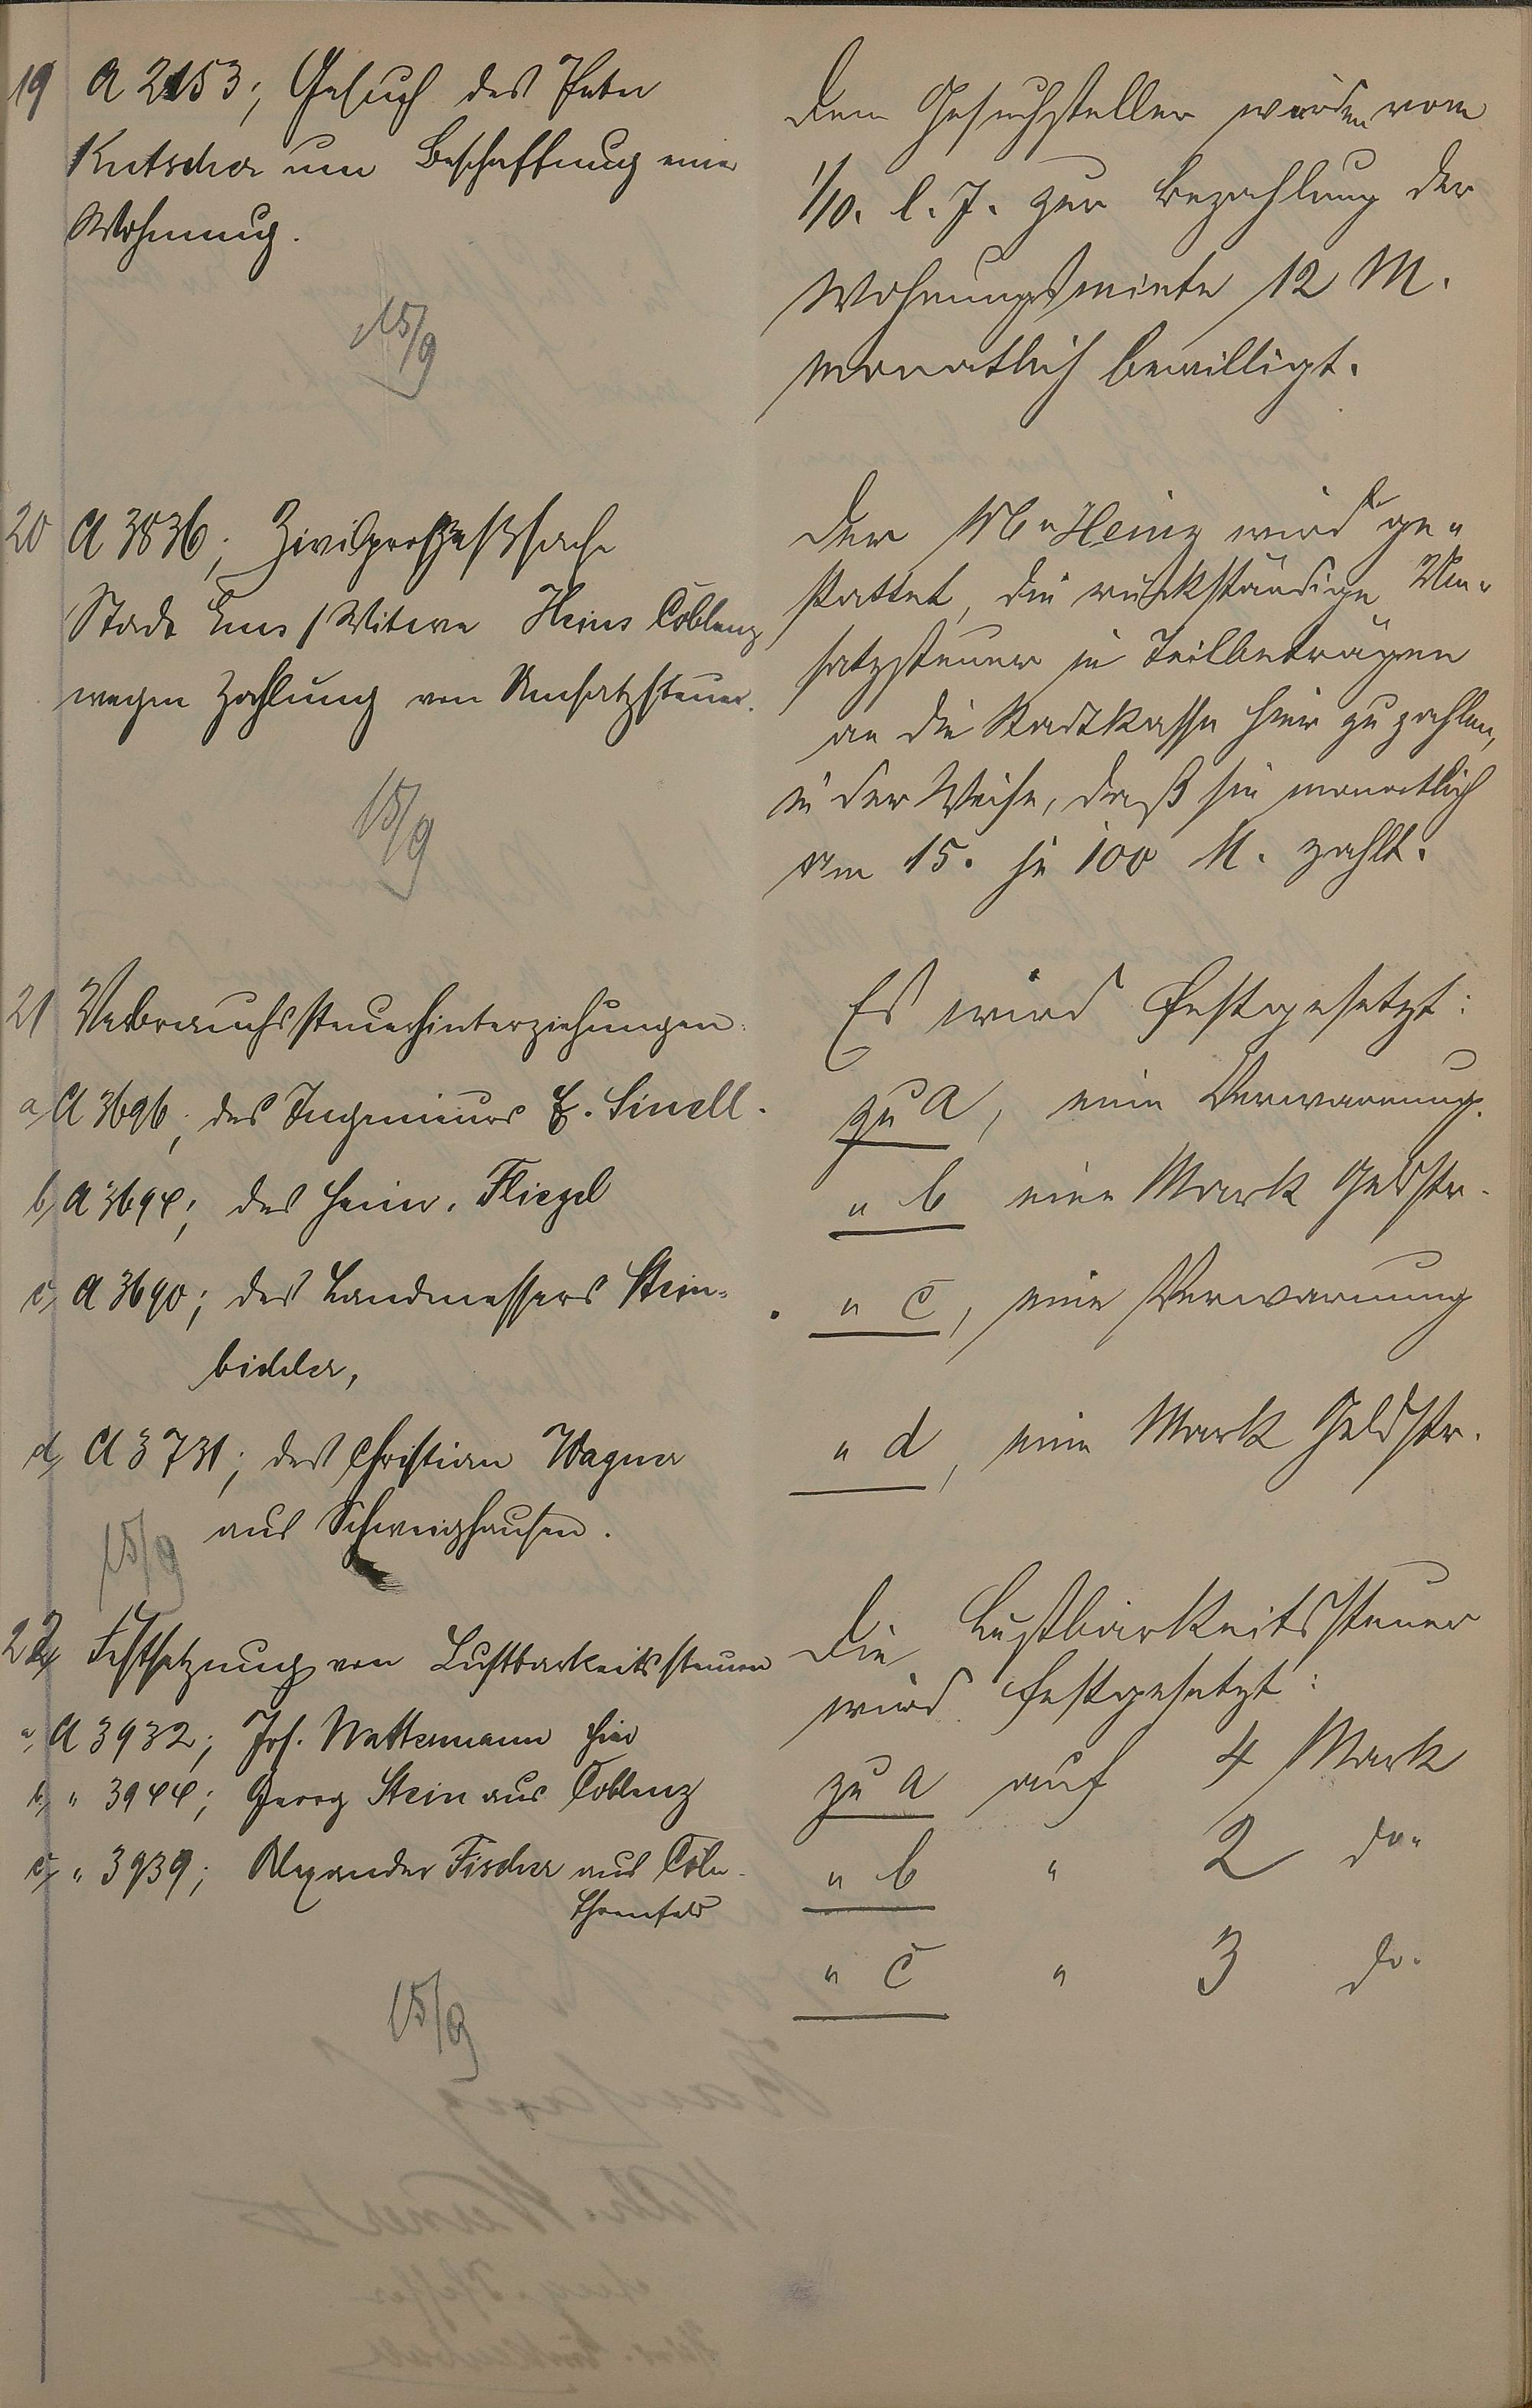 19 A 2153; Gesuch des Peter
Kutscher um Beschaffung einer
Wohnung.
15/9
Dem Gesuchsteller werden vom
1/10. l. J. zur Bezahlung der
Wohnungsmiete 12 M.
monatlich bewilligt.
20 A 3836; Zivilprozeßsache
Stadt Ems / Witwe Heinz Coblenz
wegen Zahlung von Umsatzsteuer.
15/9
Der Ww Heinz wird ge-
stattet, die rückständige Um-
satzsteuer in Teilbeträgen
an die Stadtkasse hier zu zahlen,
in der Weise, daß sie monatlich
am 15. je 100 M. zahlt.
21 Verbrauchssteuerhinterziehungen.
a, A 3696; des Ingenieurs E. Sinell.
b, A 3694; des Heinr. Fliegel
c, A 3690; des Landmessers Stein-
bidder,
d, A 3731; des Christian Wagner
aus Schweighausen.
15/9
Es wird festgesetzt:
zu a, eine Verwarnung.
" b eine Mark Geldstr.
" c, eine Verwarnung
" d, eine Mark Geldstr.
22, Festsetzung von Lustbarkeitssteuern
a, A 3932; Jos. Wattermann hier
b, " 3944; Georg Stein aus Coblenz
c, " 3939; Alexander Fischer aus Cöln-
Ehrenfeld
15/9
Die Lustbarkeitssteuer
wird festgesetzt:
zu a auf 4 Mark
" b " 2 do.
" c " 3 do.